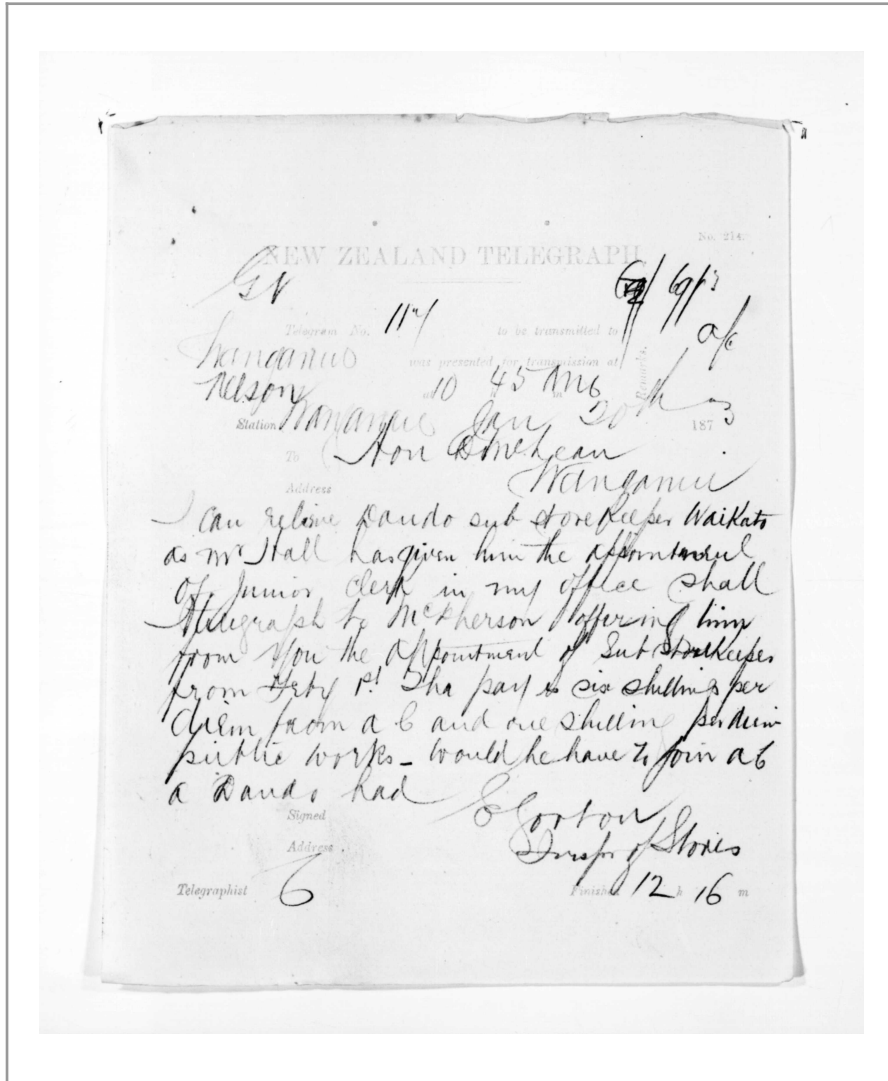 No. 214.
NEW ZEALAND TELEGRAPH
GN
Telegram No. 114 to be transmitted to
Wanganui was presented for transmission at
Remarks.
Nelson at 10 45 m
Station Wanganui Jan 20th 1873
To Hon D McLean
Address Wanganui
I can relieve Dando sub storekeeper Waikato
as Mr Hall has given him the appointment
of Junior clerk in my office shall
I telegraph to McPherson offering him
from you the appointment of Sub Storekeeper
from Feby 1st The pay is six shillings per
diem from A C and one shilling per diem
public works - would he have to join A C
a Dando had
Signed E Gorton
Address Inspr of Stores
Telegraphist Finished 12 h 16 m